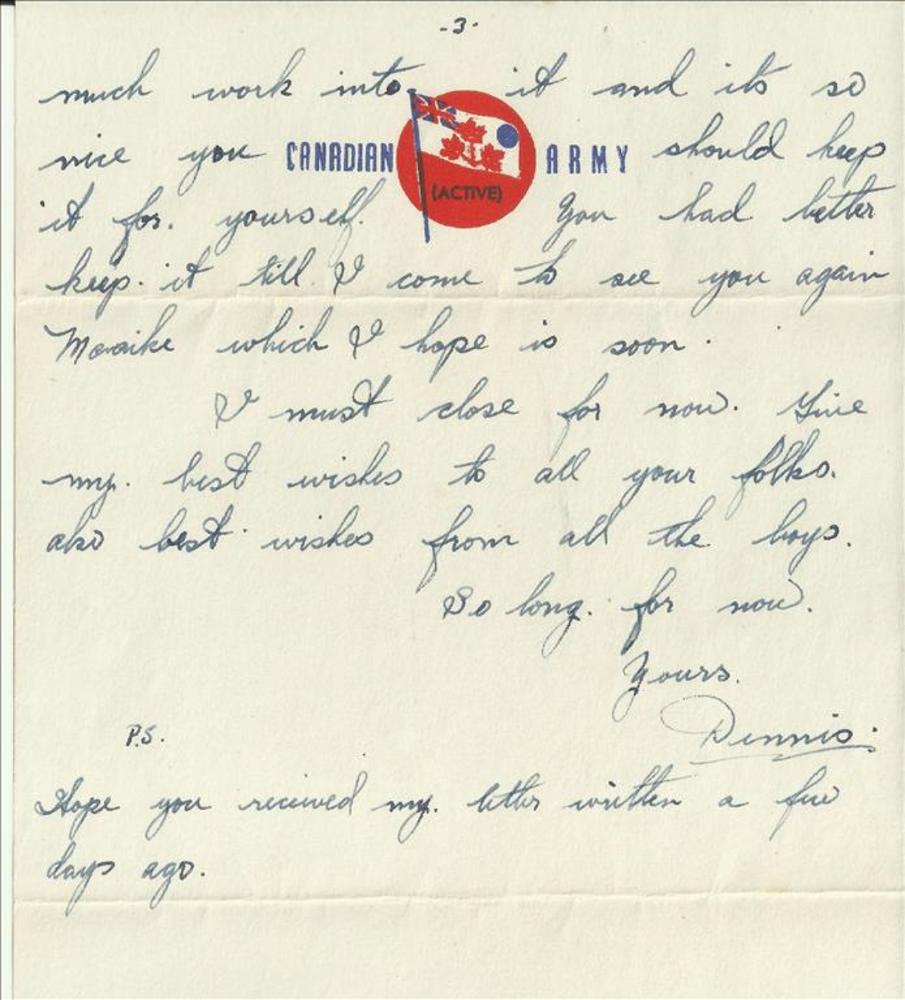 -3-
much work into it and its so
nice you CANADIAN ARMY should keep
(ACTIVE)
it for. yourself. You had better
keep. it till. I come to see you again
Maraike which I hope is soon.
I must close for now. Give
my. best wishes to all your folks.
also best wishes from all the boys.
So long. for now.
Yours.
Dennis.
P.S.
Hope you received my. letter written a few
days ago.